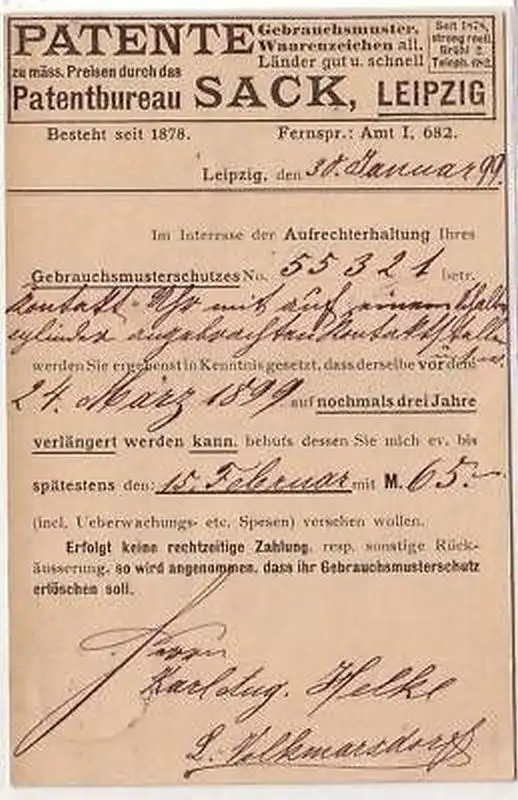 PATENTE Gebrauchsmuster, Waarenzeichen all. Länder gut u. schnell
Seit 1878, streng reell. Brühl 2. Teleph. 682.
zu mäss. Preisen durch das
Patentbureau SACK, LEIPZIG
Besteht seit 1878. Fernspr.: Amt I, 682.
Leipzig, den 30. Januar 99.
Im Interesse der Aufrechterhaltung Ihres
Gebrauchsmusterschutzes No. 55321 betr.
Kontakt-Uhr mit auf einem
cylinder angebrachten
werden Sie ergebenst in Kenntnis gesetzt, dass derselbe vor dem
24. März 1899 auf nochmals drei Jahre
verlängert werden kann, behufs dessen Sie mich ev. bis
spätestens den: 15. Februar mit M. 65.-
(incl. Ueberwachungs- etc. Spesen) versehen wollen.
Erfolgt keine rechtzeitige Zahlung, resp. sonstige Rück-
äusserung, so wird angenommen, dass ihr Gebrauchsmusterschutz
erlöschen soll.
Herrn
Karl Aug. Helke
L. Volkmarsdorf